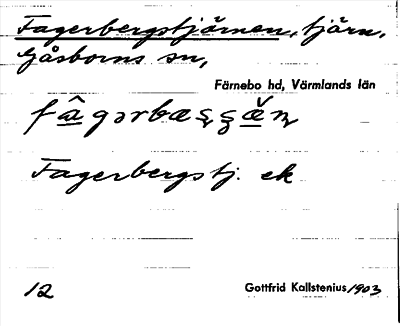 Fagerbergstjärnen, tjärn,
Gåsborns sn,
Färnebo hd, Värmlands län
Fagerbergstj. ek
12
Gottfrid Kallstenius 1903